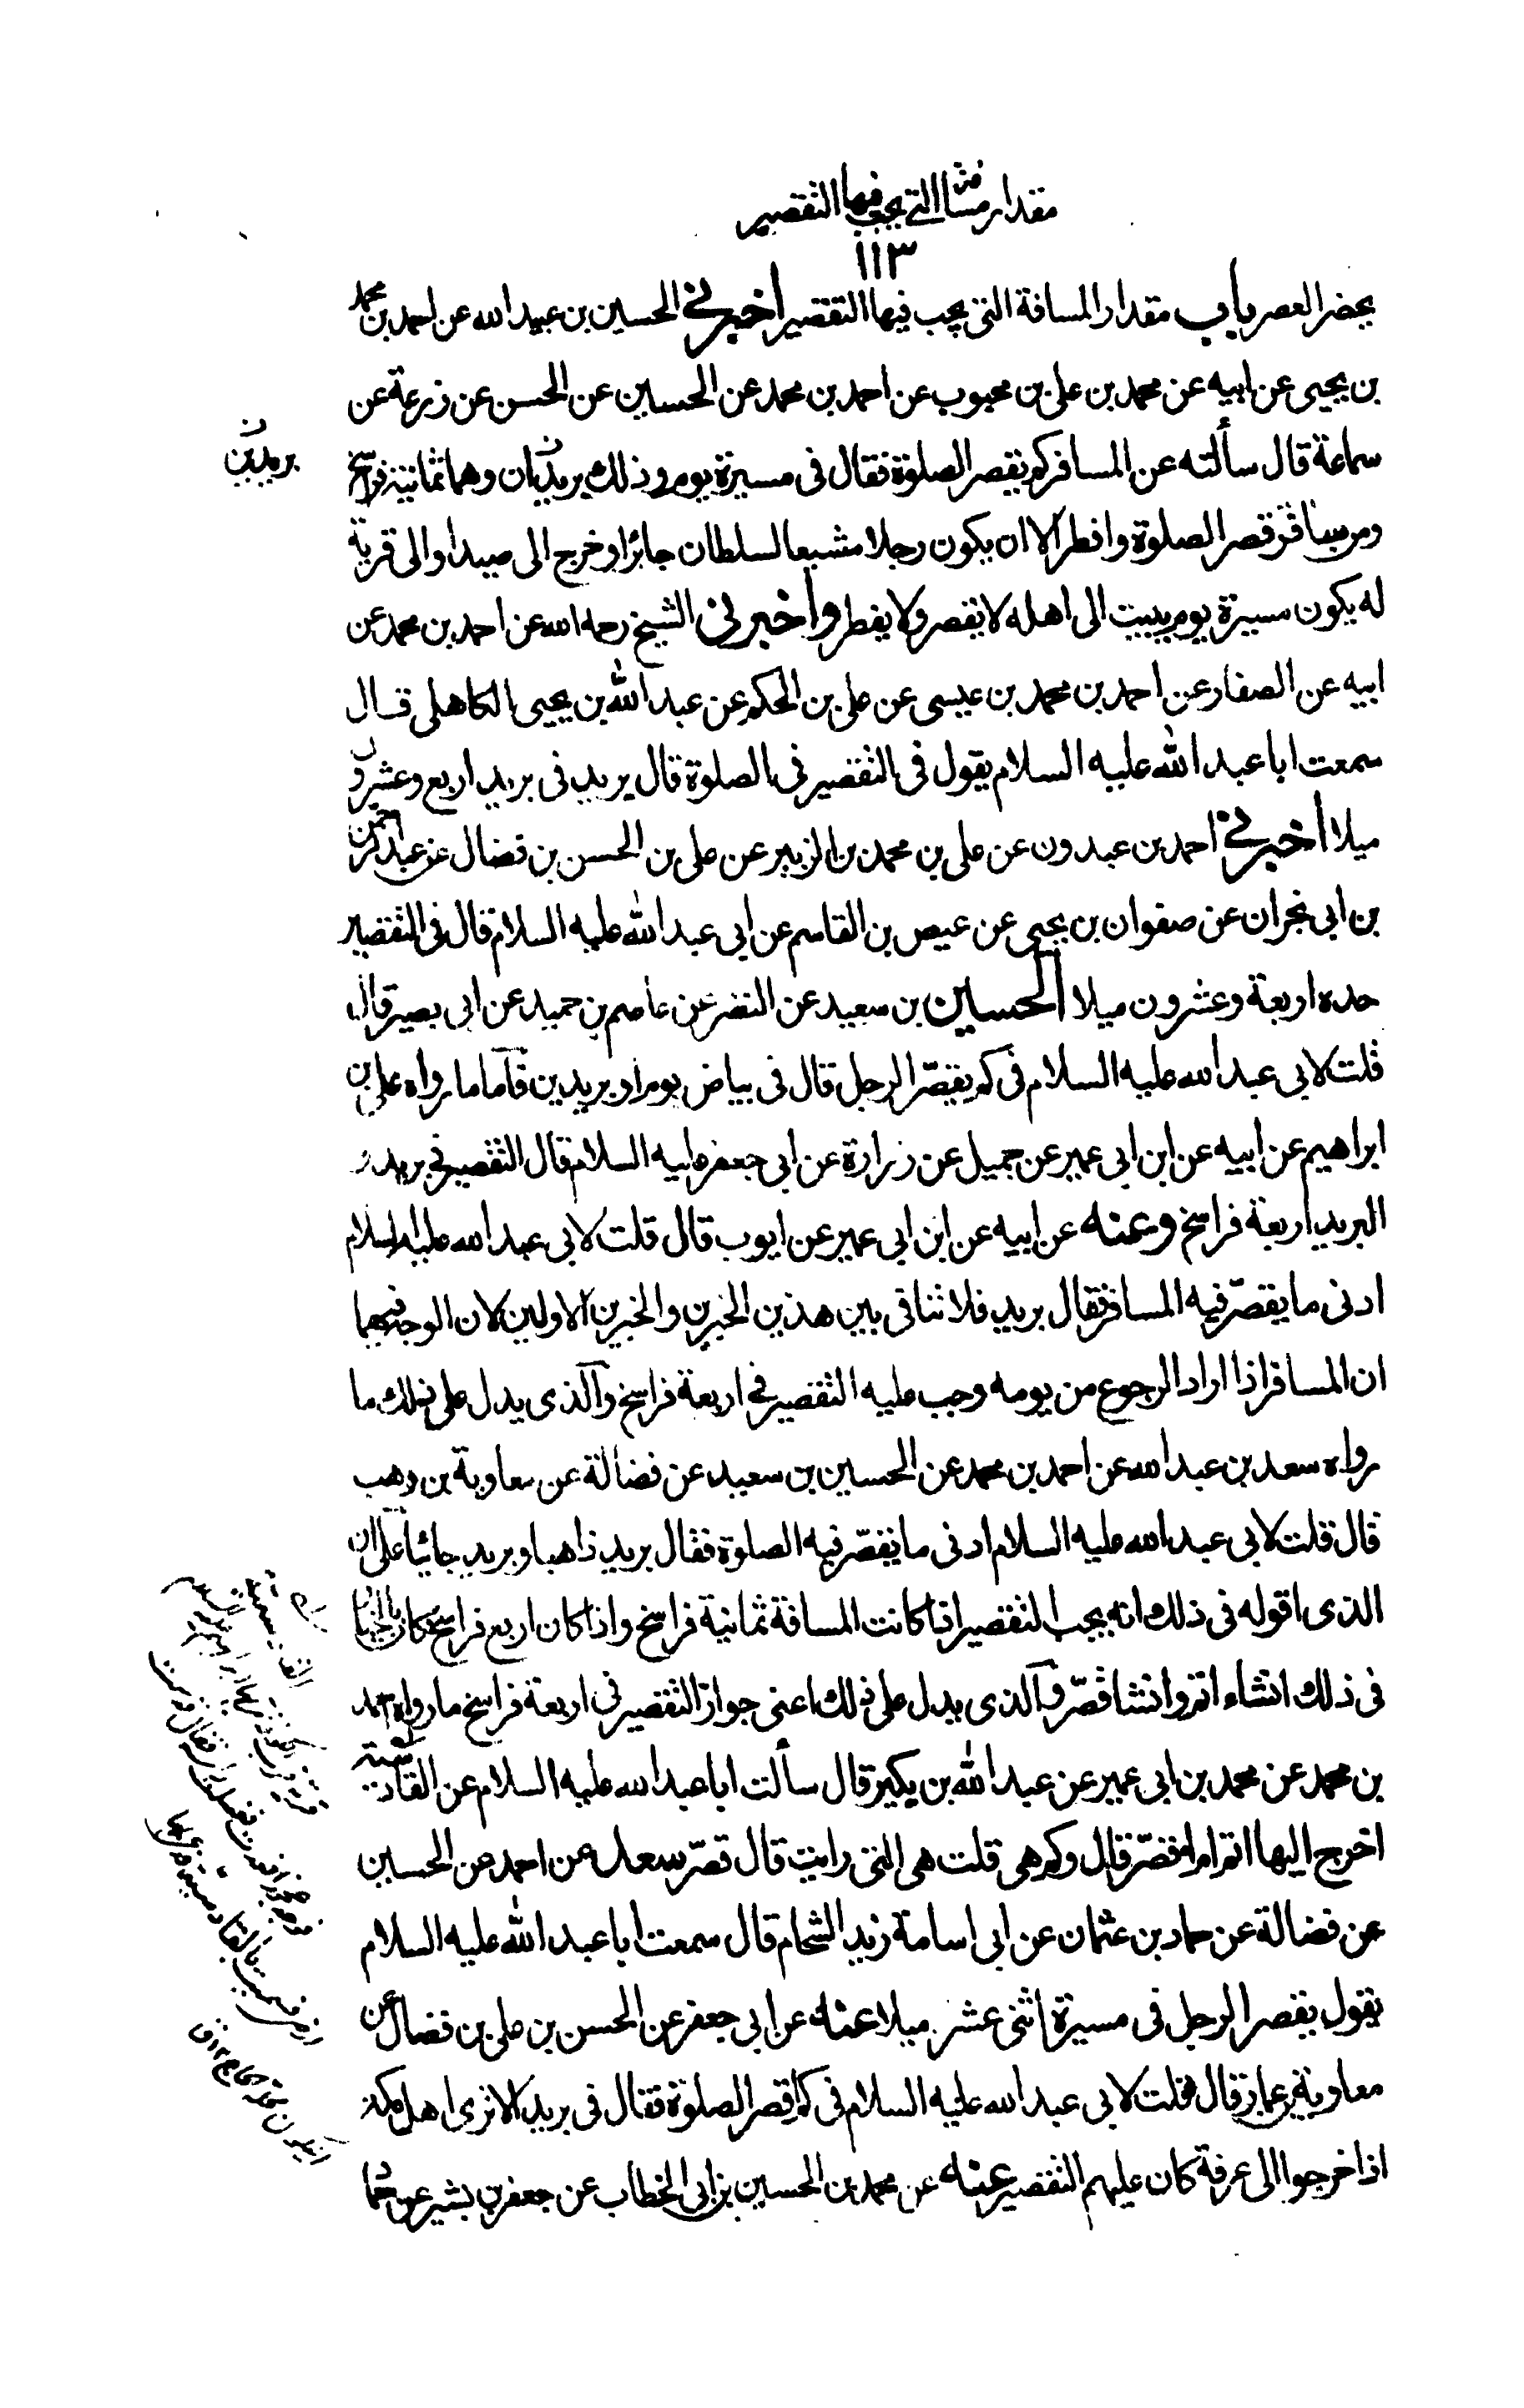 مقدار مسافة التي يجب فيها التقصير
١١٣
يحضر العصر باب مقدار المسافة التي يجب فيها التقصير أخبرني الحسين بن عبيد الله عن احمد بن محمد
بن يحيى عن ابيه عن محمد بن على بن محبوب عن احمد بن محمد عن الحسين عن الحسن عن زرعة عن
سماعة قال سألته عن المسافر كم يقصر الصلوة فقال فى مسيرة يوم و ذلك بريدان وهما ثمانية فراسخ
بريدين ن
ومن سافر قصر الصلوة وافطر الا ان يكون رجلا مشيعا لسلطان جائر او خرج الى صيد او الى قرية
له يكون مسيرة يوم يبيت الى اهله لا يقصر ولا يفطر وأخبرني الشيخ رحمه الله عن احمد بن محمد عن
ابيه عن الصفار عن احمد بن محمد بن عيسى عن على بن الحكم عن عبد الله بن يحيى الكاهلى قال
سمعت ابا عبد الله عليه السلام يقول فى التقصير فى الصلوة قال بريد فى بريد اربع وعشرون
ميلا أخبرني احمد بن عبدون عن على بن محمد بن الزبير عن على بن الحسن بن فضال عن عبد الرحمن
بن ابى نجران عن صفوان بن يحيى عن عيص بن القاسم عن ابى عبد الله عليه السلام قال فى التقصير
حده اربعة وعشرون ميلا الحسين بن سعيد عن النضر عن عاصم بن حميد عن ابى بصير قال
قلت لابى عبد الله عليه السلام فى كم يقصّر الرجل قال فى بياض يوم او بريدين فاما ما رواه على بن
ابراهيم عن ابيه عن ابن ابى عمير عن جميل عن زرارة عن ابى جعفر عليه السلام قال التقصير فى بريد و
البريد اربعة فراسخ وعنه عن ابيه عن ابن ابى عمير عن ايوب قال قلت لابى عبد الله عليه السلام
ادنى ما يقصّر فيه المسافر فقال بريد فلا تنافى بين هذين الخبرين والخبرين الاولين لان الوجه فيهما
ان المسافر اذا اراد الرجوع من يومه وجب عليه التقصير فى اربعة فراسخ والذى يدل على ذلك ما
رواه سعد بن عبد الله عن احمد بن محمد عن الحسين بن سعيد عن فضالة عن معاوية بن وهب
قال قلت لابى عبد الله عليه السلام ادنى ما يقصّر فيه الصلوة فقال بريد ذاهبا و بريد جائيا على ان
الذى اقوله فى ذلك انه يجب التقصير اذا كانت المسافة ثمانية فراسخ واذا كان اربع فراسخ كان بالخيار
فى ذلك انشاء اتم وانشا قصّر والذى يدل على ذلك اعنى جواز التقصير فى اربعة فراسخ ما رواه احمد
بن محمد عن محمد بن ابى عمير عن عبد الله بن بكير قال سألت ابا عبد الله عليه السلام عن القادسية
اخرج اليها اتم ام اقصّر قال وكم هى قلت هى التى رايت قال قصّر سعد عن احمد عن الحسين
عن فضالة عن حماد بن عثمان عن ابى اسامة زيد الشحام قال سمعت ابا عبد الله عليه السلام
يقول يقصر الرجل فى مسيرة اثنى عشر ميلا عنه عن ابى جعفر عن الحسن بن على بن فضال عن
معاوية بن عمار قال قلت لابى عبد الله عليه السلام فى كم اقصر الصلوة فقال فى بريد الا ترى اهل مكة
اذا خرجوا الى عرفة كان عليهم التقصير عنه عن محمد بن الحسين بن ابى الخطاب عن جعفر بن بشير عن حما